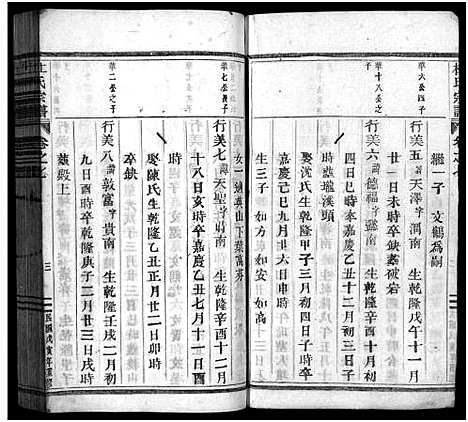 華六公四子
華十八公之子
繼一子 文鶴為嗣
行美五 諱天澤 字潤南 生乾隆戊午十一月
廿一日未時卒缺葬破岩
行美六 諱德福 字 南 生乾隆辛酉十月初
四日巳時卒嘉慶乙丑十二月初三日子
時葬 溪頭
娶沈氏生乾隆甲子三月初四日子時卒
嘉慶己巳九月廿六日申時
生三子 如方 如安 如
華七公長子
華二公之子
女一 適眞山下葉萬芬
行美七 諱天聖 字 南 生乾隆辛酉十二月
十八日亥時卒嘉慶乙丑七月十一日酉
時
娶陳氏生乾隆乙丑正月廿二日卯時
行美八 諱敦富 字貴南 生乾隆壬戌二月初
九日酉時卒乾隆庚子二月廿三日戌時
葬殿上
杜氏宗譜
卷之七
三
民國戊寅年重修